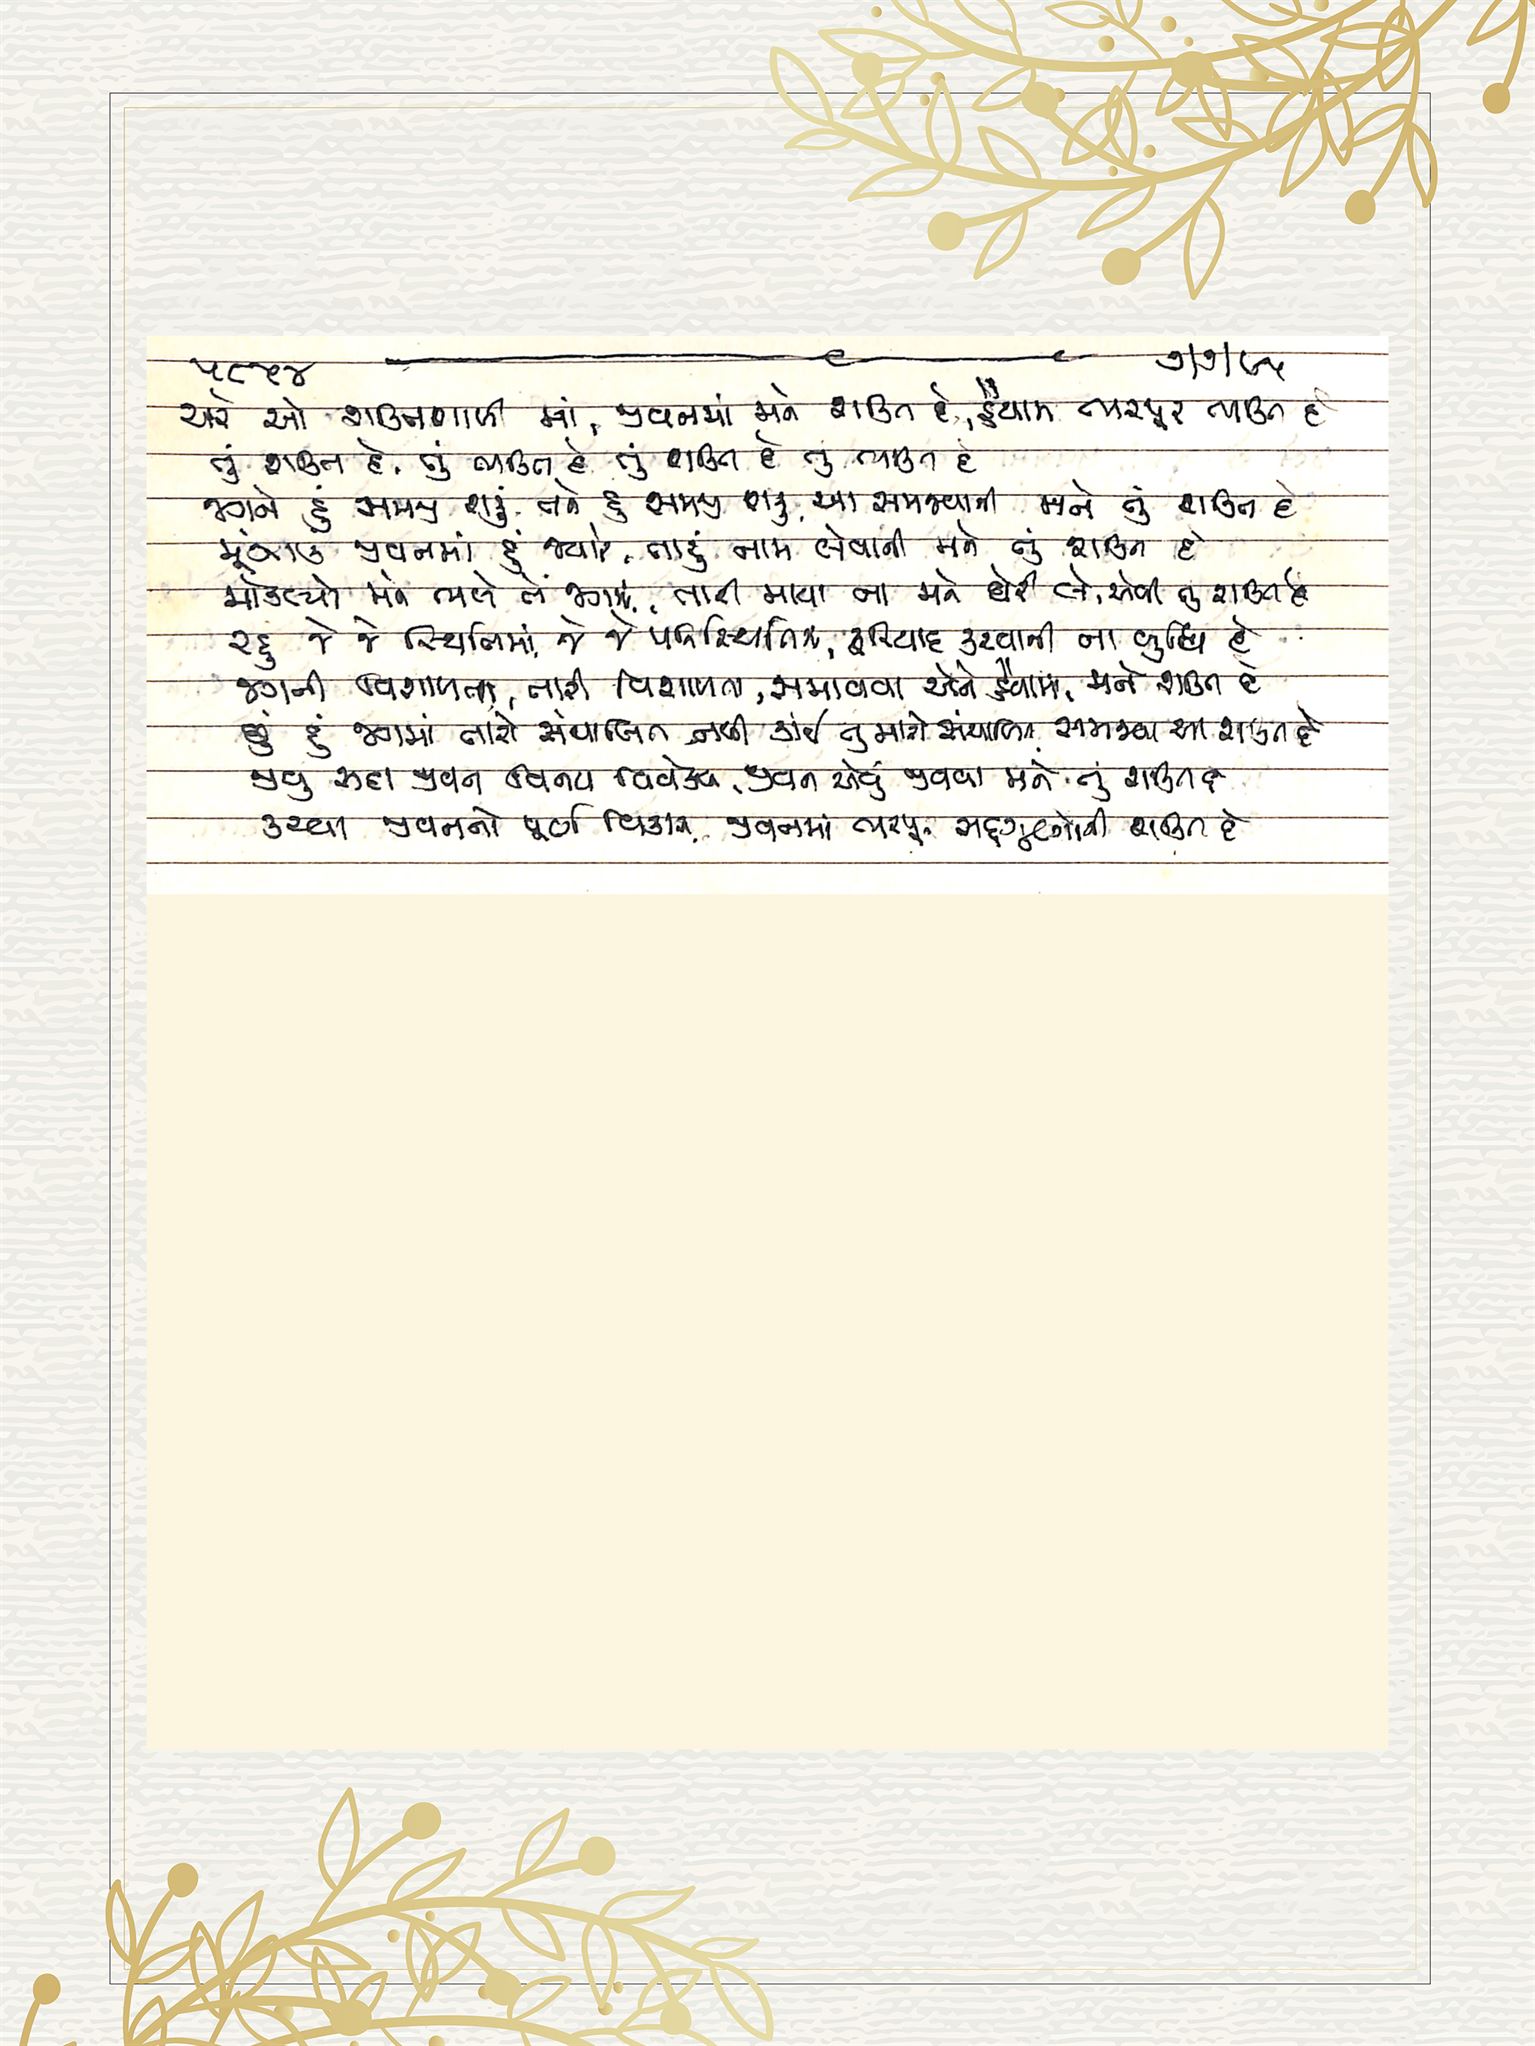 ૫૮૫૪ ૭/૭/૯૫
અરે ઓ શક્તિશાળી માં, જીવનમાં મને શક્તિ દે, હૈયામાં ભરપૂર ભક્તિ દે
તું શક્તિ દે, તું ભક્તિ દે, તું શક્તિ દે તું ભક્તિ દે
જગને હું સમજી શકું, તને હું સમજી શકું, આ સમજવાની મને તું શક્તિ દે
મૂંઝાઉં જીવનમાં હું જ્યારે, તારું નામ લેવાની મને તું શક્તિ દે
મોકલ્યો મને ભલે તેં જગમાં, તારી માયા ના મને ઘેરી લે, એવી તું શક્તિ દે
રહું જે જે સ્થિતિમાં, જે જે પરિસ્થિતિમાં, ફરિયાદ કરવાની ના બુદ્ધિ દે
જગની વિશાળતા, તારી વિશાળતા, સમાવવા એને હૈયામાં, મને શક્તિ દે
છું હું જગમાં તારો સંચાલિત નથી કાંઈ તું મારો સંચાલિત, સમજવા આ શક્તિ દે
જીવું સદા જીવન વિનય વિવેકમાં, જીવન એવું જીવવા મને તું શક્તિ દે
કરવા જીવનનો પૂર્ણ વિકાસ, જીવનમાં ભરપૂર સદ્ગુણોની શક્તિ દે